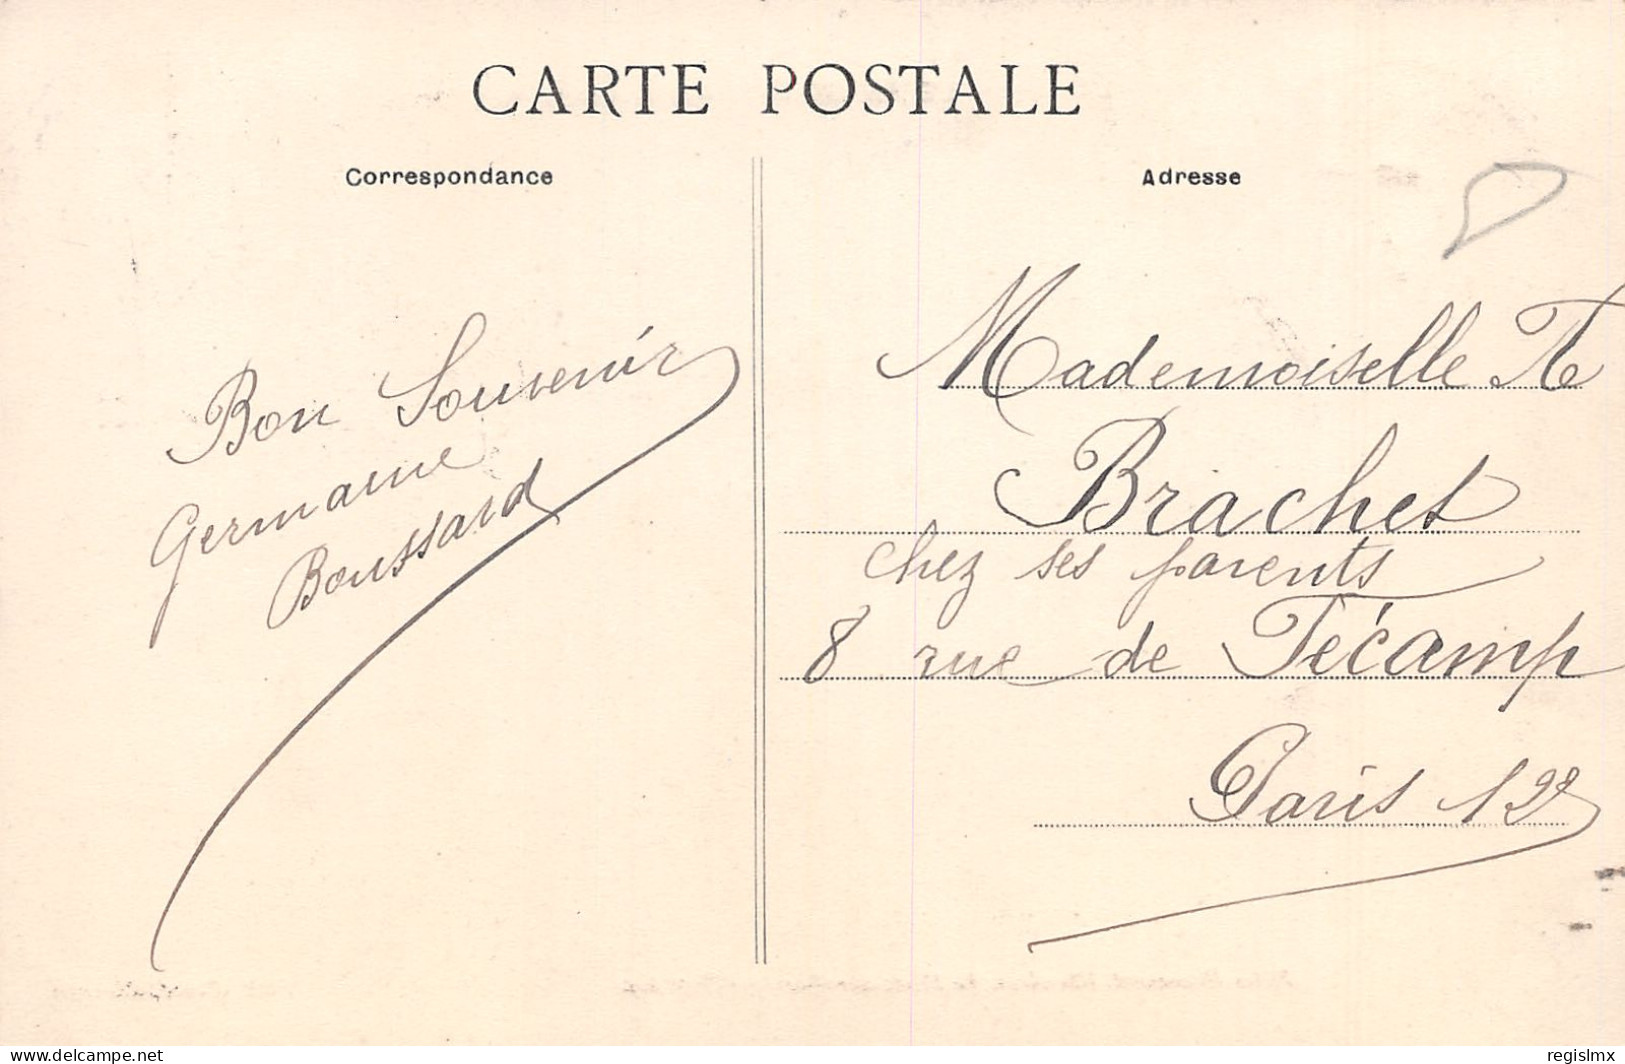 CARTE POSTALE
Correspondance
Bon Souvenir
Germaine
Boussard
Adresse
Mademoiselle
Brachet
chez ses parents
8 rue de Fécamp
Paris 12e
www.delcampe.net
regislmx